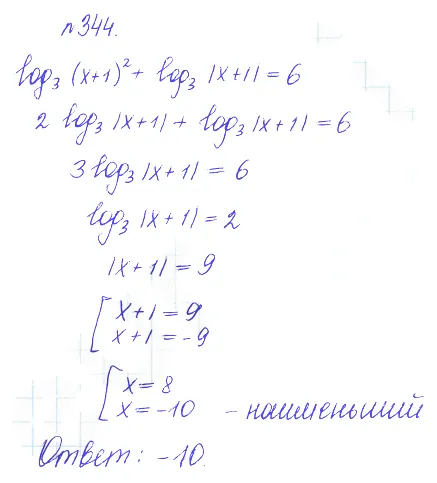 №344.
log₃ (x+1)² + log₃ |x+1| = 6
2 log₃ |x+1| + log₃ |x+1| = 6
3 log₃ |x+1| = 6
log₃ |x+1| = 2
|x+1| = 9
[ x+1 = 9
x+1 = -9
[ x = 8
x = -10 - наименьший
Ответ: -10.